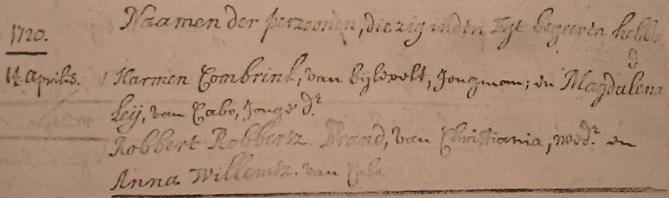 Naamen der perzoonen, die zig in den Egt begeeven hebbe
1720.
14 aprilis. Harmen Combrink, van bylevelt, Jongman; en Magdalena
Leij, van Cabo, Jonge dr.
Robbert Robbertz. Brand, van Christiania, wedr. en
Anna Willemsz. van Cabo.